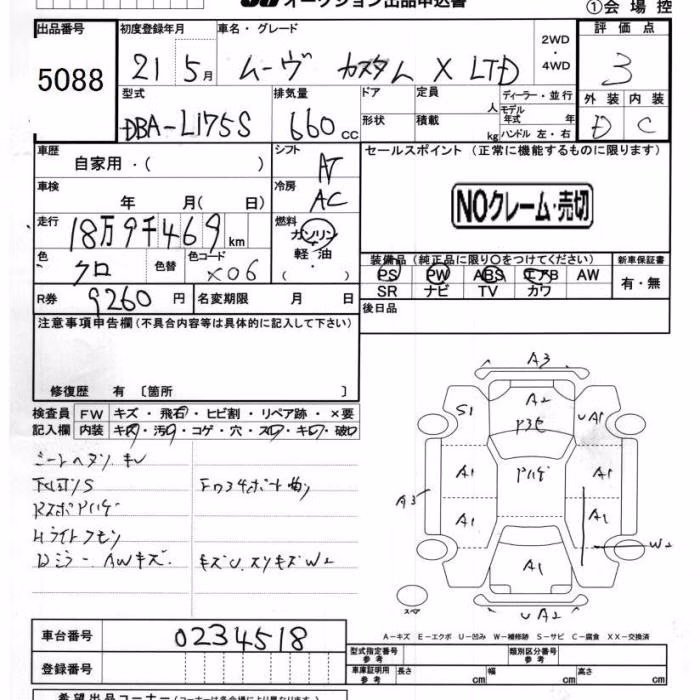 オークション出品申込書
①会場控
出品番号 5088
初度登録年月 21 5月
車名・グレード ムーヴ カスタム X LTD
2WD ・ 4WD
評価点 3
外装 D 内装 C
型式 DBA-L175S
排気量 660cc
ドア 形状
定員 人
積載 kg
ディーラー・並行
モデル年式 年
ハンドル 左・右
車歴 自家用・( )
シフト AT
車検 年 月(日)
冷房 AC
走行 18万9千469km
燃料 ガソリン 軽油 ( ・ )
色 クロ 色替 色コード X06
R券 9260円 名変期限 月 日
セールスポイント (正常に機能するものに限ります)
NOクレーム・売切
装備品(純正品に限り○をつけてください)
PS PW ABS エアB AW
SR ナビ TV カワ
新車保証書 有・無
後日品
注意事項申告欄(不具合内容等は具体的に記入して下さい)
修復歴 有 〔箇所 〕
検査員記入欄
FW キズ・飛石・ヒビ割・リペア跡・×要
内装 キズ・汚レ・コゲ・穴・スレ・キレ・破レ
AWキズ.
A3
S1 A2 UA1
A1 A1
A3 A1 A1
W2
A1
スペア
UA2
A-キズ E-エクボ U-凹み W-補修跡 S-サビ C-腐食 XX-交換済
車台番号 0234518
登録番号
型式指定番号 参考
類別区分番号 参考
車庫証明用 参考 長さ cm 幅 cm 高さ cm
希望出品コーナー